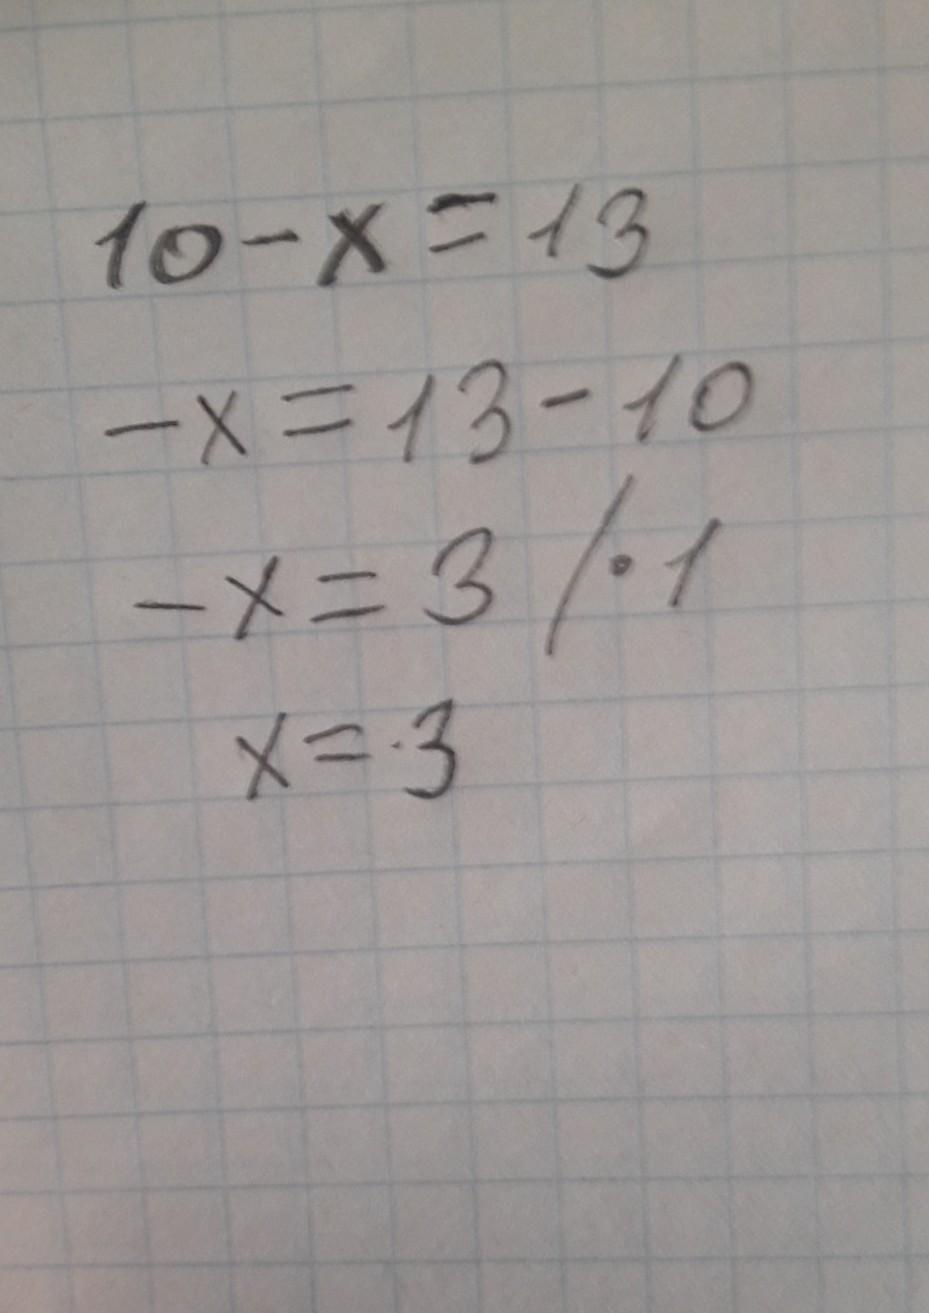 10-x=13
-x=13-10
-x=3 /·1
x=·3